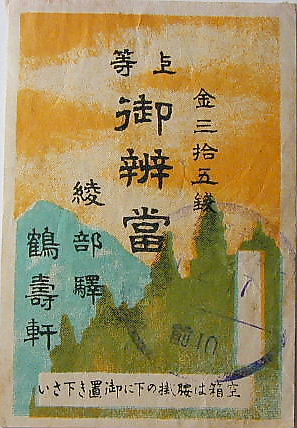 上等
御辨當
金三拾五錢
綾部驛
鶴壽軒
空箱は腰掛の下に御置き下さい
前10